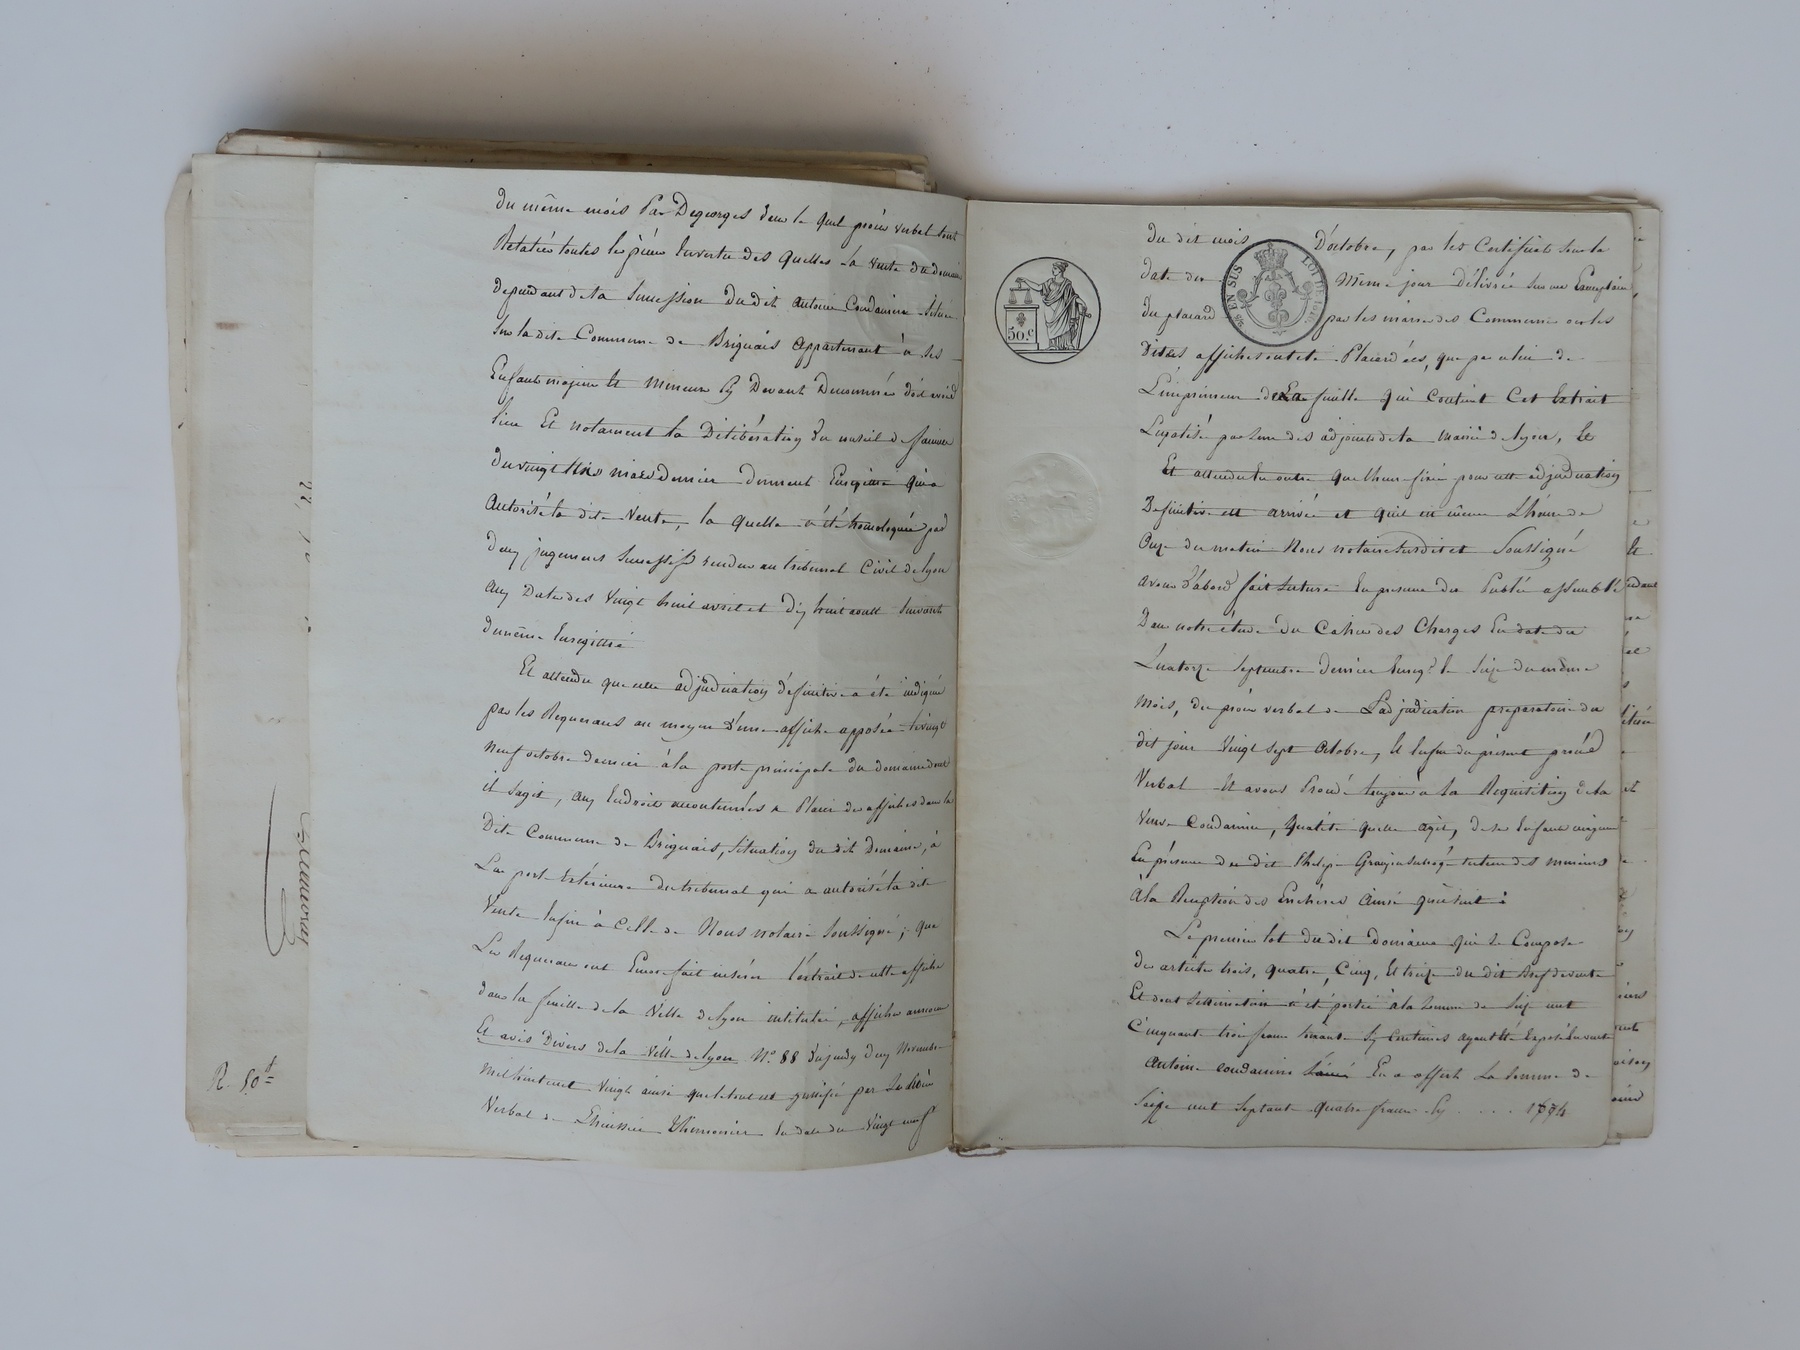 du même mois Par Degeorges dans le quel procès verbal sont
Relatées toutes les pièces Envertu des quelles La vente du domaine
dependant de la Succession du dit antoine Condamin Située
Sur la dite Commune de Brignais appartenant à ses
Enfants majeurs et mineurs Cy Devant Denommés doit avoir
lieu Et notament la Délibération du conseil de famille
du vingt trois mars dernier dument Enregittré qui a
Autorisé la dite Vente, la quelle a été homologuée par
deux jugements Successifs rendus au tribunal Civil de lyon
aux Dates des Vingt huit avril et dix huit aoust Suivant
de même Enregittré
Et attendu que cette adjudication définitive a été indiquée
par les Requerans au moyen d'une affiche apposée le vingt
neuf octobre dernier à la porte principale du domaine dont
il Sagit, aux Endroits accoutumés a Placer des affiches dans la
Dite Commune de Brignais, Situation du dit Domaine, à
La porte Extérieure du tribunal qui a autorisé la dite
Vente Enfin à Celle de Nous notaire Soussigné; que
Les Requerans ont Encore fait insérer l'extrait de cette affiche
dans la feuille de la Ville de lyon intitulée, affiches annonces
Et avis Divers de la Ville de lyon N.º 88 du jeudy deux Novembre
mil huit cent Vingt ainsi que le tout est justifié par le Procès
Verbal de L'huissier Thimonier En date du Vingt neuf
R. 50
du dit mois D'octobre, par les Certificats Sous la
date du Même jour Délivrés Sur un Exemplaire
du placard par les maires des Communes ou les
Dites affiches ont été Placardées, que par celui de
L'imprimeur de La feuille qui Contient Cet Extrait
Legalisé par l'un des adjoints de la mairie de lyon, Et
Et attendu En outre que l'heure fixée pour cette adjudication
Definitive est arrivée et qu'il est même L'heure de
Onze du matin Nous notaire Susdit et Soussigné
avons d'abord fait lecture En presence du Public assemblé
Dans notre étude du Cahier des Charges En date du
Quatorze Septembre Dernier Enreg.é le Seize du même
Mois, du procès verbal de L'adjudication preparatoire du
dit jour Vingt Sept Octobre, Et Enfin du présent procès
Verbal Et avons Procédé toujours a la Requisition de la
Veuve Condamin, Qualité quelle agit, de ses Enfants majeurs
En présence du dit Philipe Granjon subrogé tuteur des mineurs
à la Reception des Enchères ainsi qu'il suit :
Le premier lot du dit domaine qui Se Compose
des articles trois, quatre, Cinq, Et treize du dit Bref de vente
Et dont l'estimation a été portée à la Somme de Seize cent
Cinquant trois francs Soixante Six Centimes ayant été Exposé En vente
Antoine Condamin En a offert La Somme de
Seize cent Septante quatre francs Cy . . . . 1674
50.c
EN SUS
LOI DE 1816.